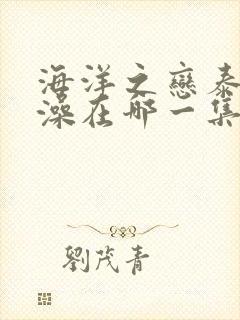 海洋之戀泰
澡在哪一集
劉茂青